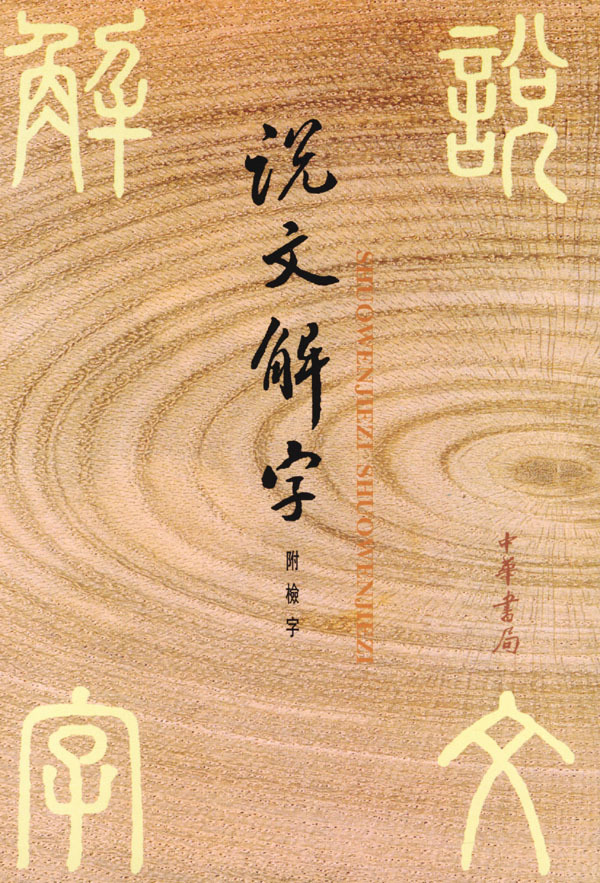 說文
解字
说文解字
附檢字
SHUOWENJIEZI SHUOWENJIEZI
中華書局